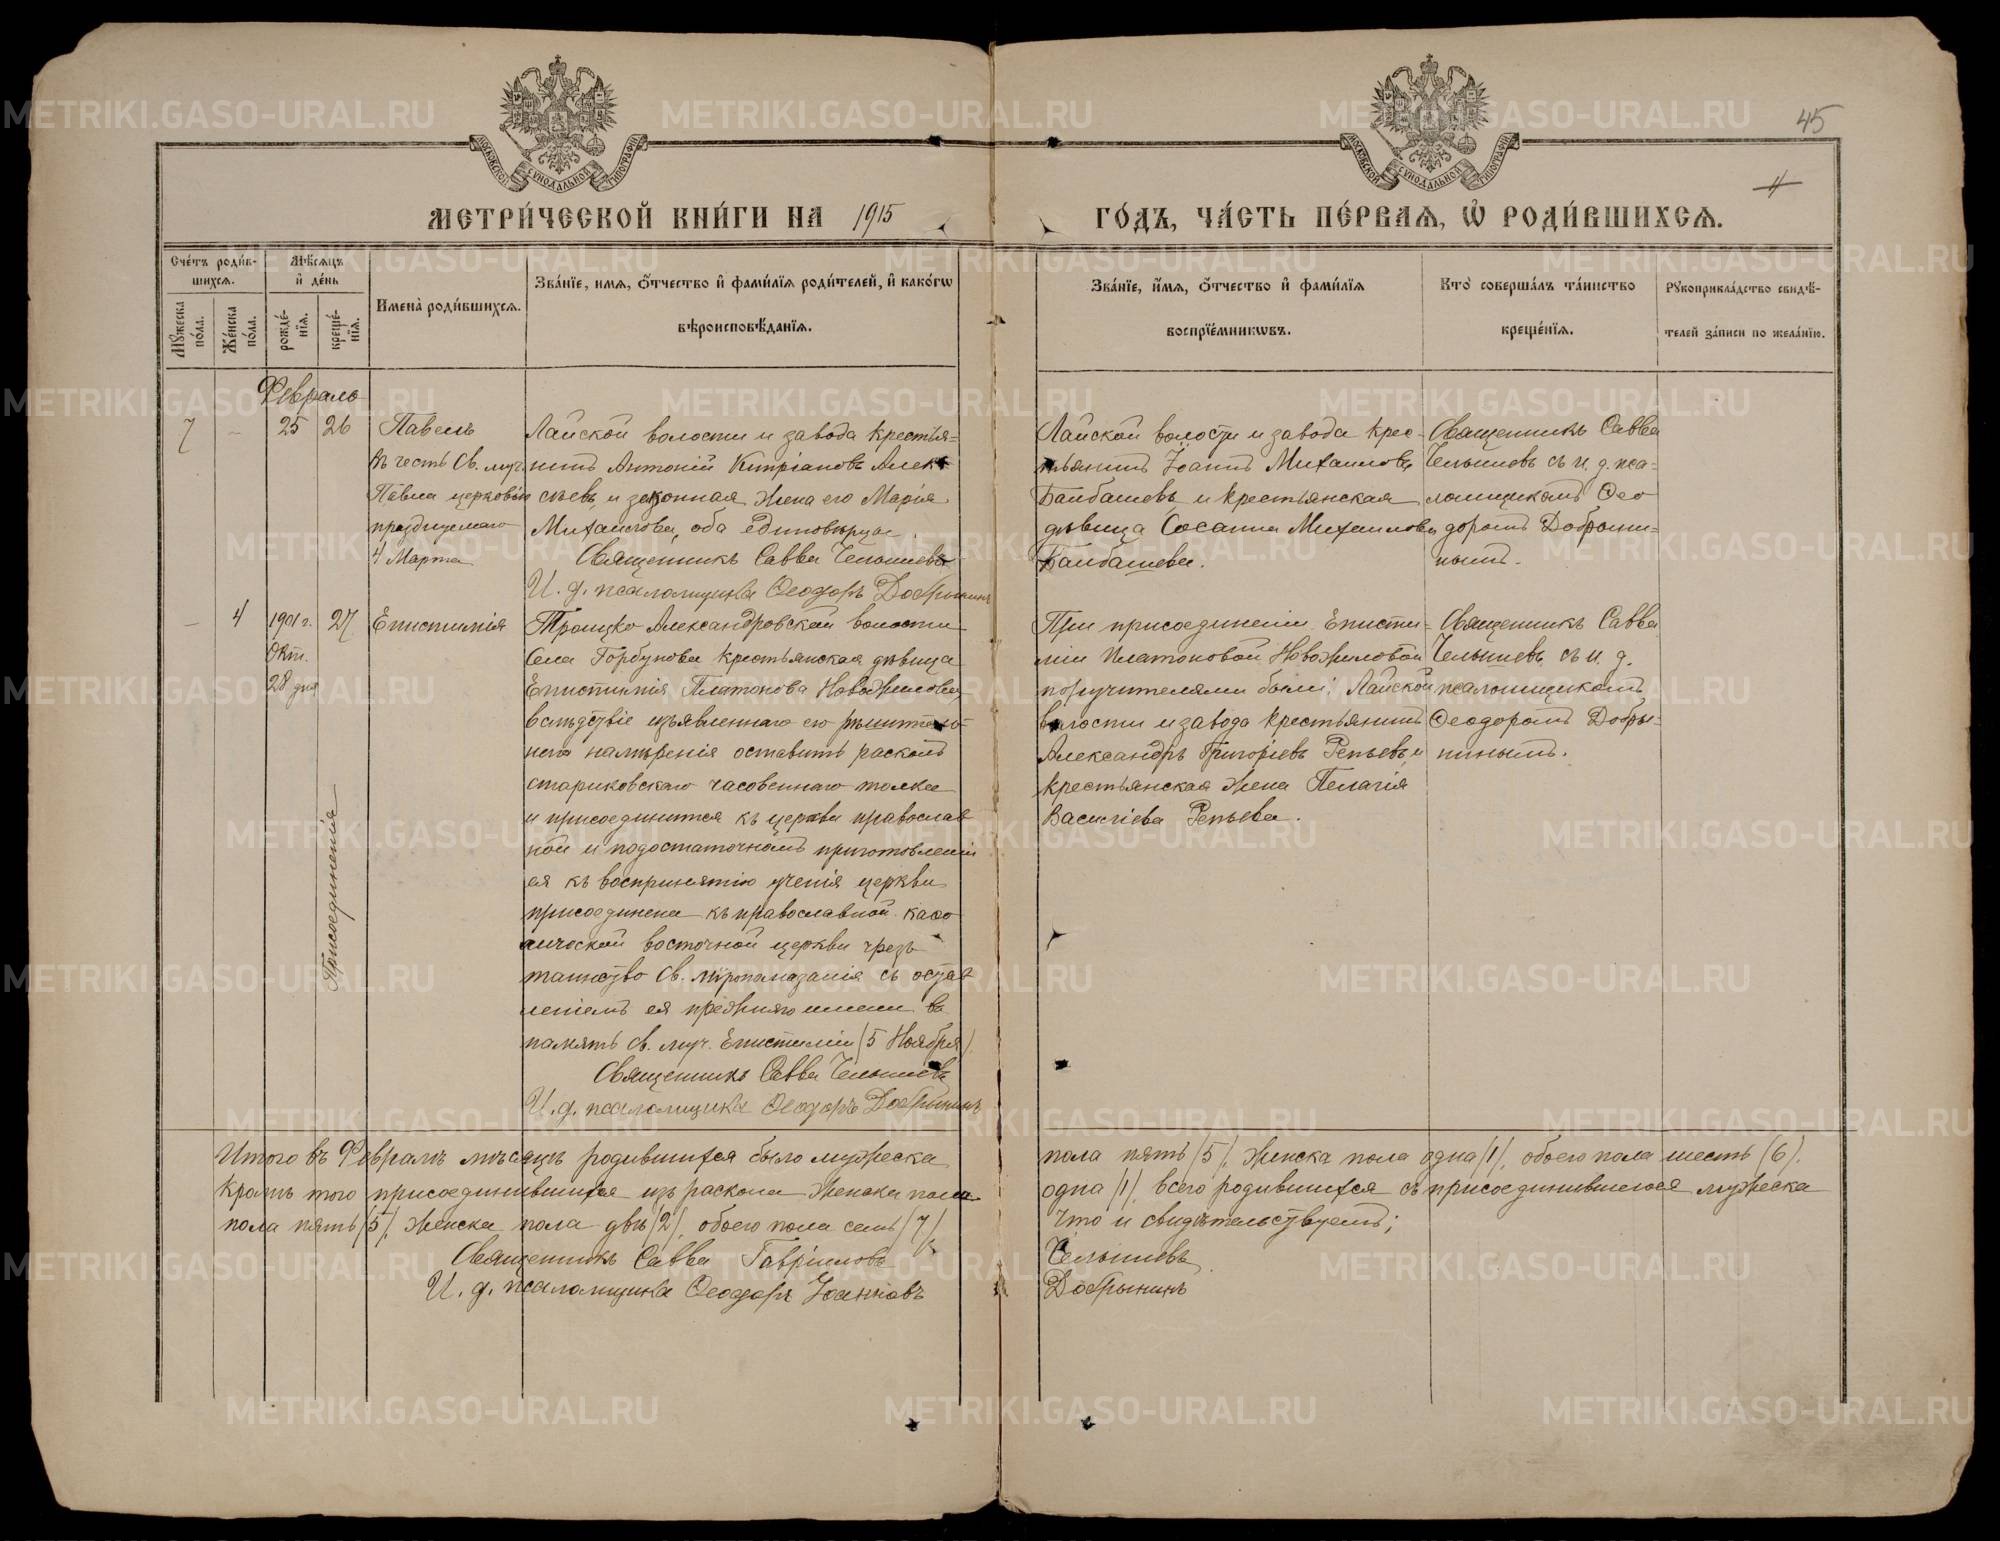 45
4
МОСКОВСКОЙ СѴНОДАЛЬНОЙ ТИПОГРАФІИ
МОСКОВСКОЙ СѴНОДАЛЬНОЙ ТИПОГРАФІИ
МЕТРИ́ЧЕСКОЙ КНИ́ГИ НА 1915 ГО́ДЪ, ЧА́СТЬ ПЕ́РВАѦ, Ѡ҆ РОДИ́ВШИХСѦ.
Сче́тъ роди́в-
шихсѧ.
Мꙋ́жеска по́ла.
Же́нска по́ла.
Мѣ́сѧцъ
и҆ де́нь
рожде́-
нїѧ.
креще́-
нїѧ.
Имена̀ роди́вшихсѧ.
Зва́нїе, и́мѧ, ѻ҆́тчество и҆ фами́лїѧ роди́телей, и҆ како́гѡ
вѣроисповѣ́данїѧ.
Зва́нїе, и҆́мѧ, ѻ҆́тчество и҆ фами́лїѧ
воспрїе́мникѡвъ.
Кто̀ соверша́лъ та́инство
креще́нїѧ.
Рꙋкоприкла́дство свидѣ́-
телей за́писи по жела́нїю.
Февраль
7
-
25
26
Павелъ
въ честь Св. муч.
Павла церковію
празднуемаго
4 Марта
Лайской волости и завода крестья-
нинъ Антоній Кипріановъ Алек-
сѣевъ, и законная жена его Марія
Михаилова, оба единовѣрцы
Священникъ Савва Челышевъ
И. д. псаломщика Ѳеодоръ Добрынинъ
Лайской волости и завода крес-
тьянинъ Іоаннъ Михаиловъ
Банбашевъ, и крестьянская
дѣвица Сосанна Михаилова
Банбашева.
Священникъ Савва
Челышевъ съ и. д. пса-
ломщикомъ Ѳео
доромъ Добрыни-
нымъ.
-
4
1901 г.
Окт.
28 дня
27
Присоединенія
Епистимія
Троицко Александровской волости
Села Горбунова крестьянская дѣвица
Епистимія Платонова Новожилова,
вслѣдствіе изъявленнаго ею рѣшитель-
наго намѣренія оставить расколъ
стариковскаго часовеннаго толка
и присоединится къ церкви православ
ной и подостаточномъ приготовленіи
ея къ воспринятію ученія церкви
присоединена къ православной каѳо
лической восточной церкви чрезъ
таинство Св. мѵропомазанія съ остав
леніемъ ея прежняго имени въ
память Св. муч. Епистиміи (5 Ноября).
Священникъ Савва Челышевъ
И. д. псаломщика Ѳеодоръ Добрынинъ
При присоединеніи Еписти-
міи Платоновой Новожиловой
поручителями были: Лайской
волости и завода крестьянинъ
Александръ Григоріевъ Репьевъ, и
крестьянская жена Пелагія
Василіева Репьева.
Священникъ Савва
Челышевъ съ и. д.
псаломщикомъ
Ѳеодоромъ Добры-
нинымъ.
Итого въ Февралѣ мѣсяцѣ родившихся было мужеска пола пять (5), женска пола одна (1), обоего пола шесть (6).
Кромѣ того присоединившихся изъ раскола женска пола одна (1), всего родившихся съ присоединившеюся мужеска
пола пять (5), женска пола двѣ (2), обоего пола семь (7) Что и свидѣтельствуемъ;
Священникъ Савва Гавріиловъ Челышевъ
И. д. псаломщика Ѳеодоръ Іоанновъ Добрынинъ
METRIKI.GASO-URAL.RU